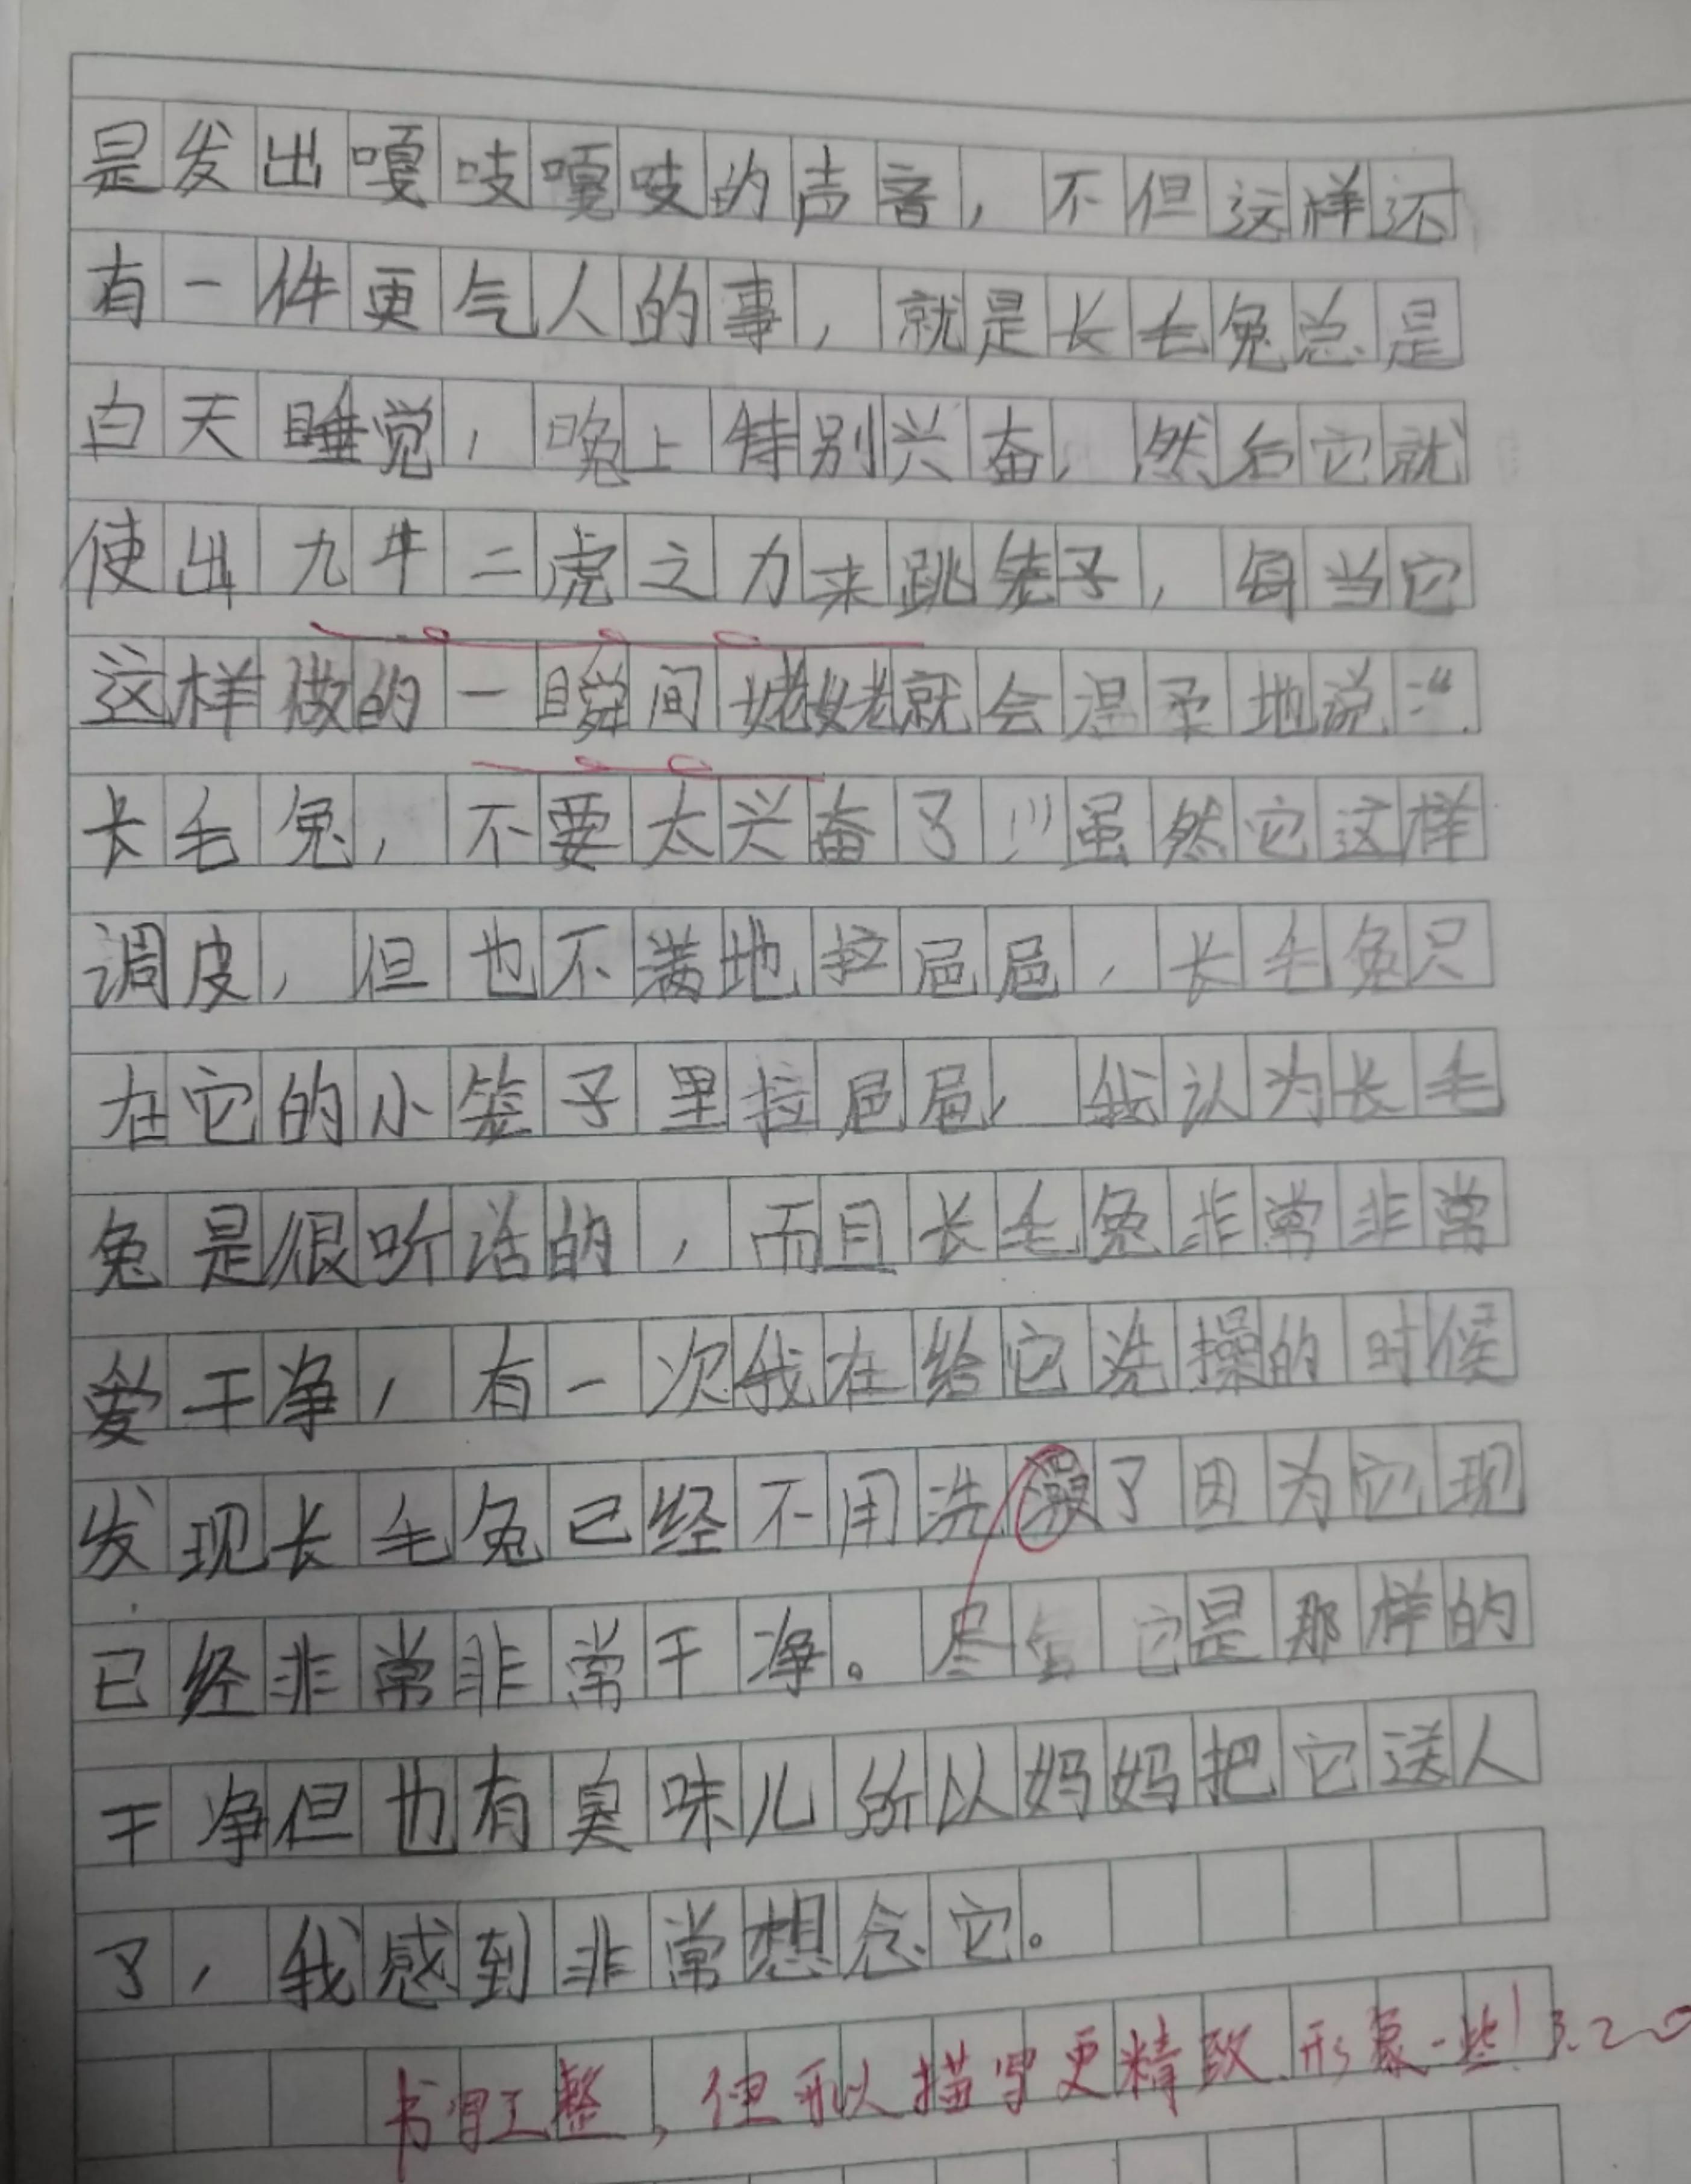 是发出嘎吱嘎吱的声音，不但这样还
有一件更气人的事，就是长毛兔总是
白天睡觉，晚上特别兴奋，然后它就
使出九牛二虎之力来跳笼子，每当它
这样做的一瞬间姥姥就会温柔地说：“
长毛兔，不要太兴奋了！”虽然它这样
调皮，但也不满地拉屁屁，长毛兔只
在它的小笼子里拉屁屁，我认为长毛
兔是很听话的，而且长毛兔非常非常
爱干净，有一次我在给它洗操的时候
发现长毛兔已经不用洗澡了因为它现
已经非常非常干净。尽管它是那样的
干净但也有臭味儿所以妈妈把它送人
了，我感到非常想念它。
书写工整，但可以描写更精致、形象一些！3.20